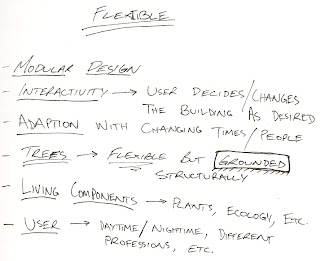 FLEXIBLE
- MODULAR DESIGN
- INTERACTIVITY → USER DECIDES/CHANGES
THE BUILDING AS DESIRED
- ADAPTION WITH CHANGING TIMES/PEOPLE
- TREES → FLEXIBLE BUT GROUNDED
STRUCTURALLY
- LIVING COMPONENTS → PLANTS, ECOLOGY, ETC.
- USER → DAYTIME/NIGHTIME, DIFFERENT
PROFESSIONS, ETC.